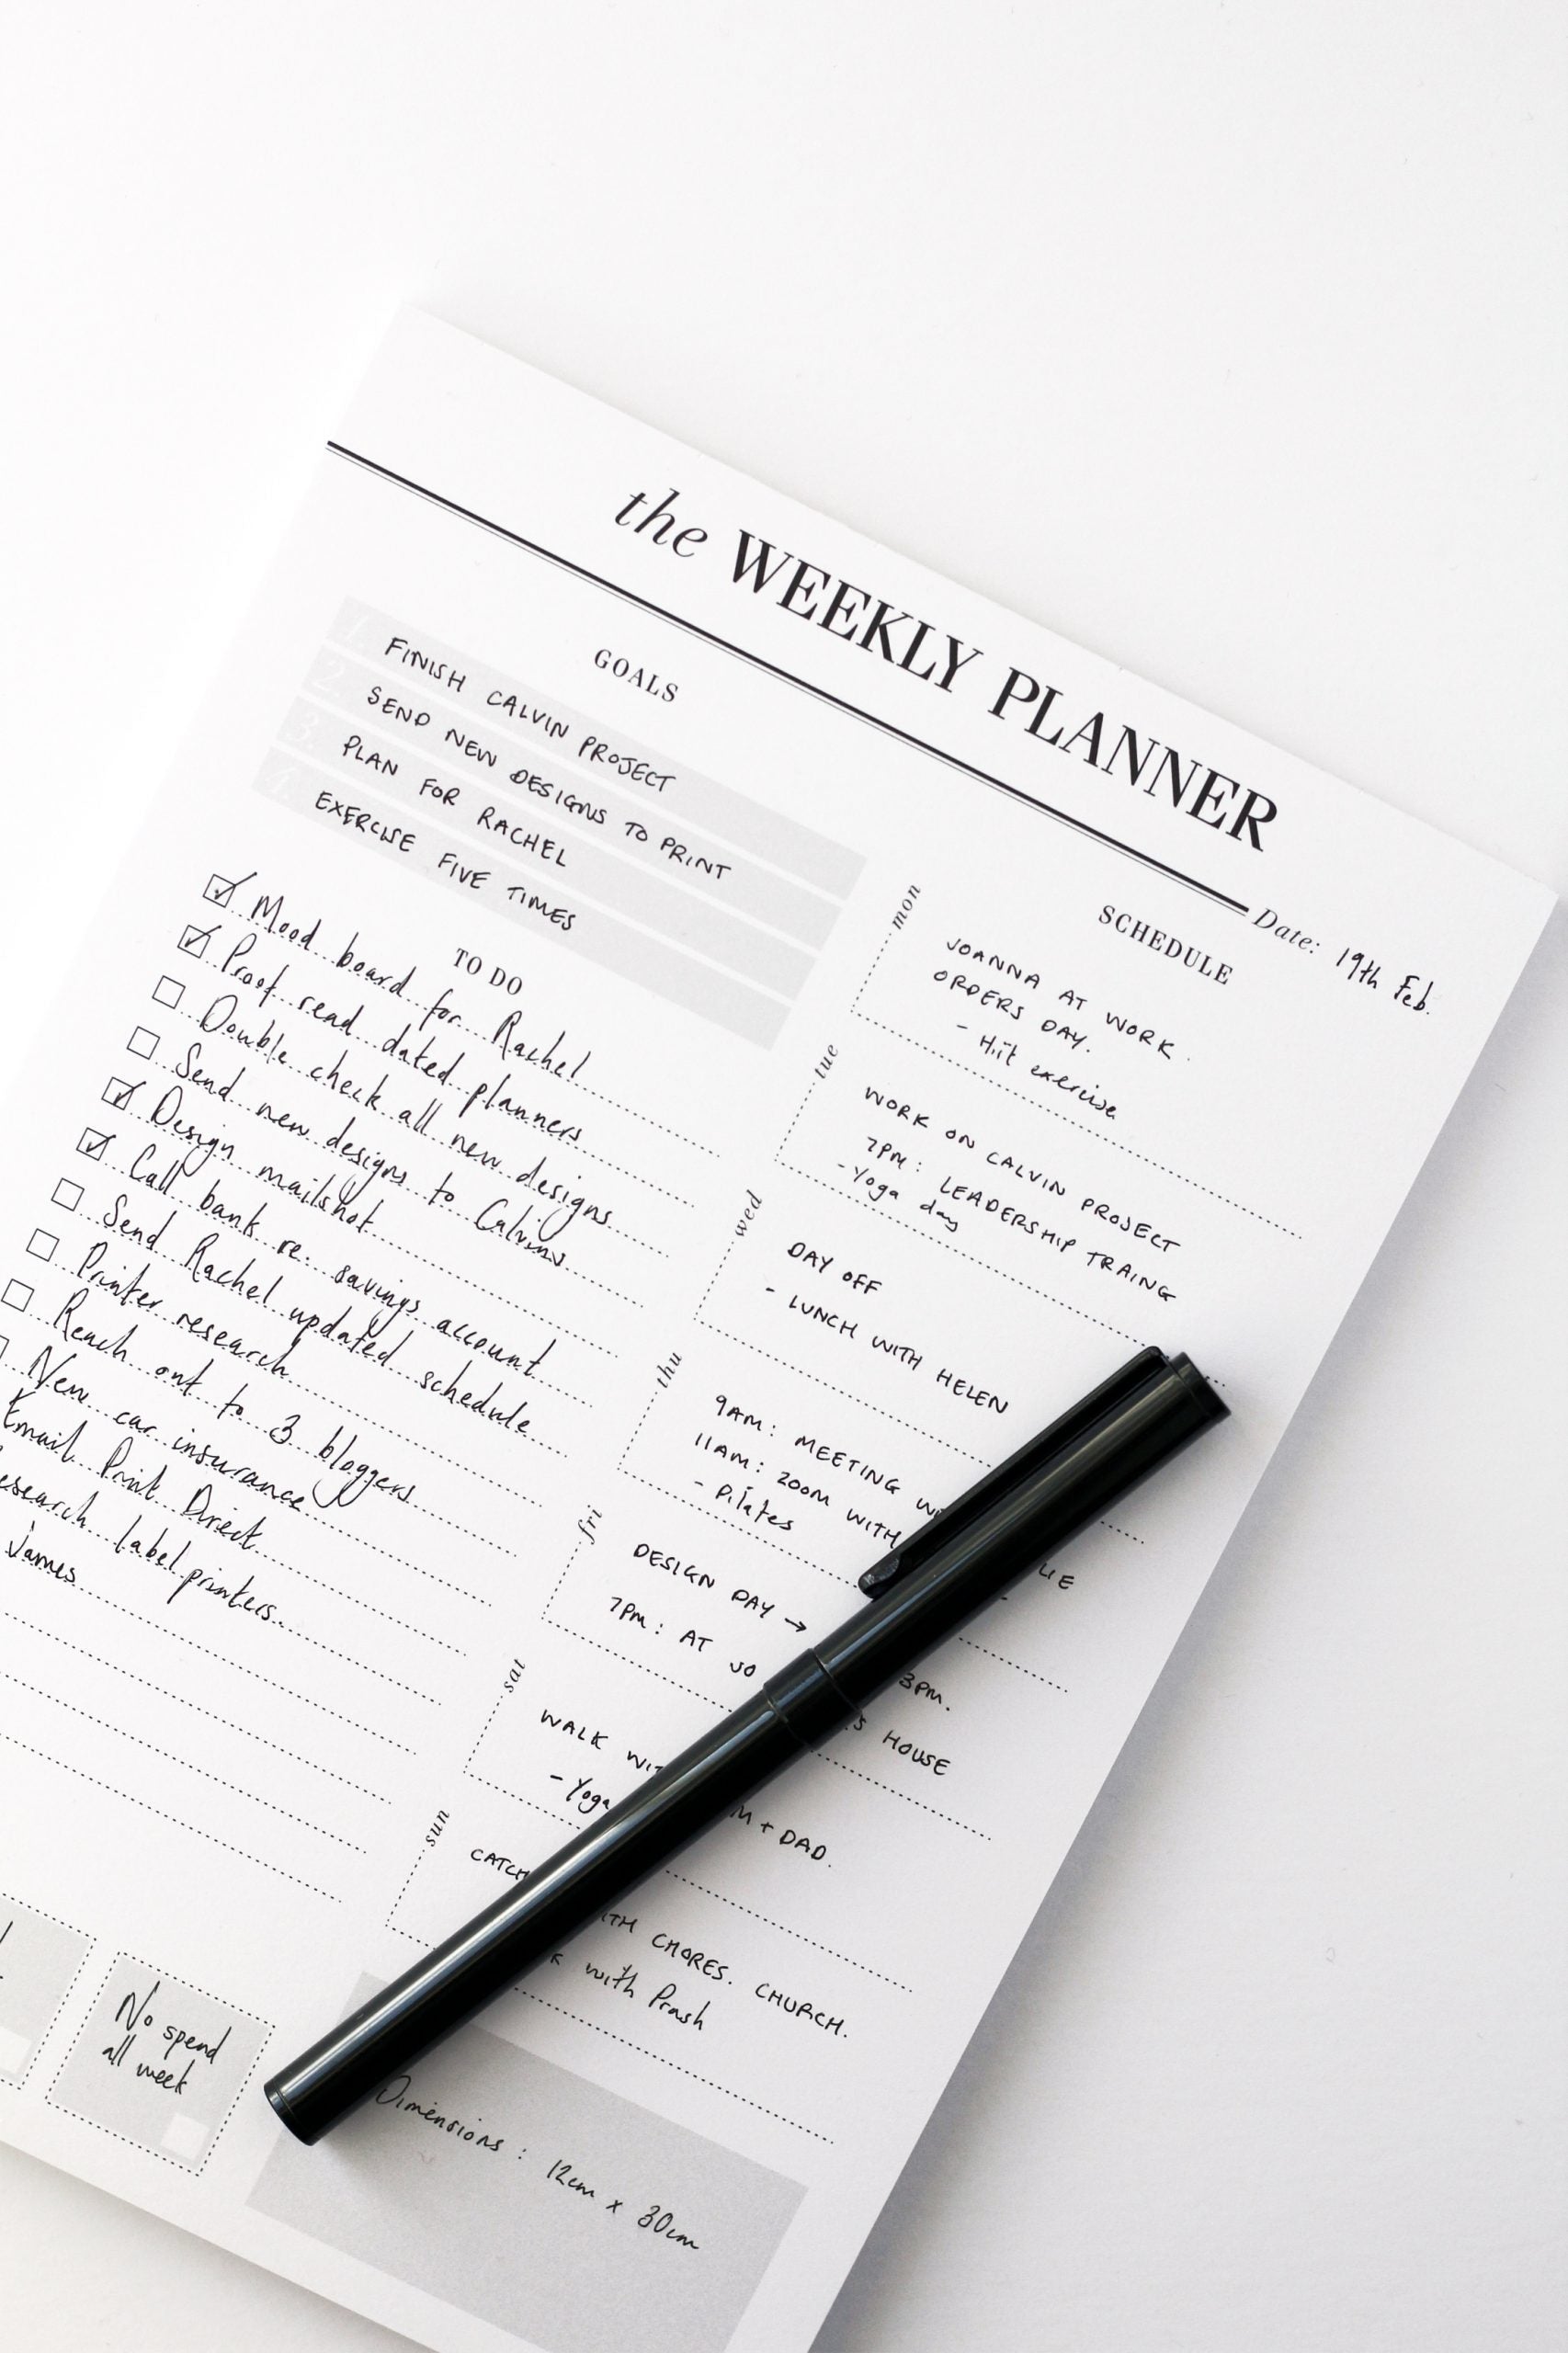 the WEEKLY PLANNER
Date: 19th Feb.
GOALS
1. FINISH CALVIN PROJECT
2. SEND NEW DESIGNS TO PRINT
3. PLAN FOR RACHEL
4. EXERCISE FIVE TIMES
TO DO
Mood board for Rachel
Proof read dated planners
Double check all new designs
Send new designs to Calvins
Design mailshot
Call bank re. savings account
Send Rachel updated schedule
Printer research
Reach out to 3 bloggers
New car insurance
Email Print Direct
label printers
James
No spend
all week
SCHEDULE
mon
JOANNA AT WORK.
ORDERS DAY.
- Hiit exercise
tue
WORK ON CALVIN PROJECT
7PM: LEADERSHIP TRAING
- Yoga day
wed
DAY OFF
- LUNCH WITH HELEN
thu
9AM: MEETING
11AM: ZOOM WITH
- Pilates
fri
DESIGN DAY → 3PM.
7PM: AT HOUSE
sat
WALK + DAD.
- Yoga
sun
CHORES. CHURCH.
with Prash
Dimensions: 12cm x 30cm